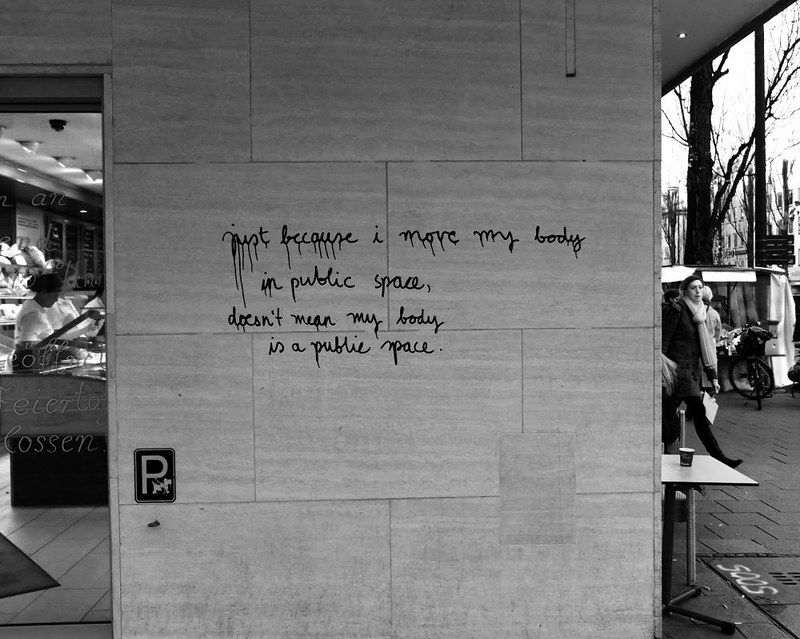 just because i move my body
in public space,
doesn't mean my body
is a public space.
P
an
Feierta
lossen
SOOS